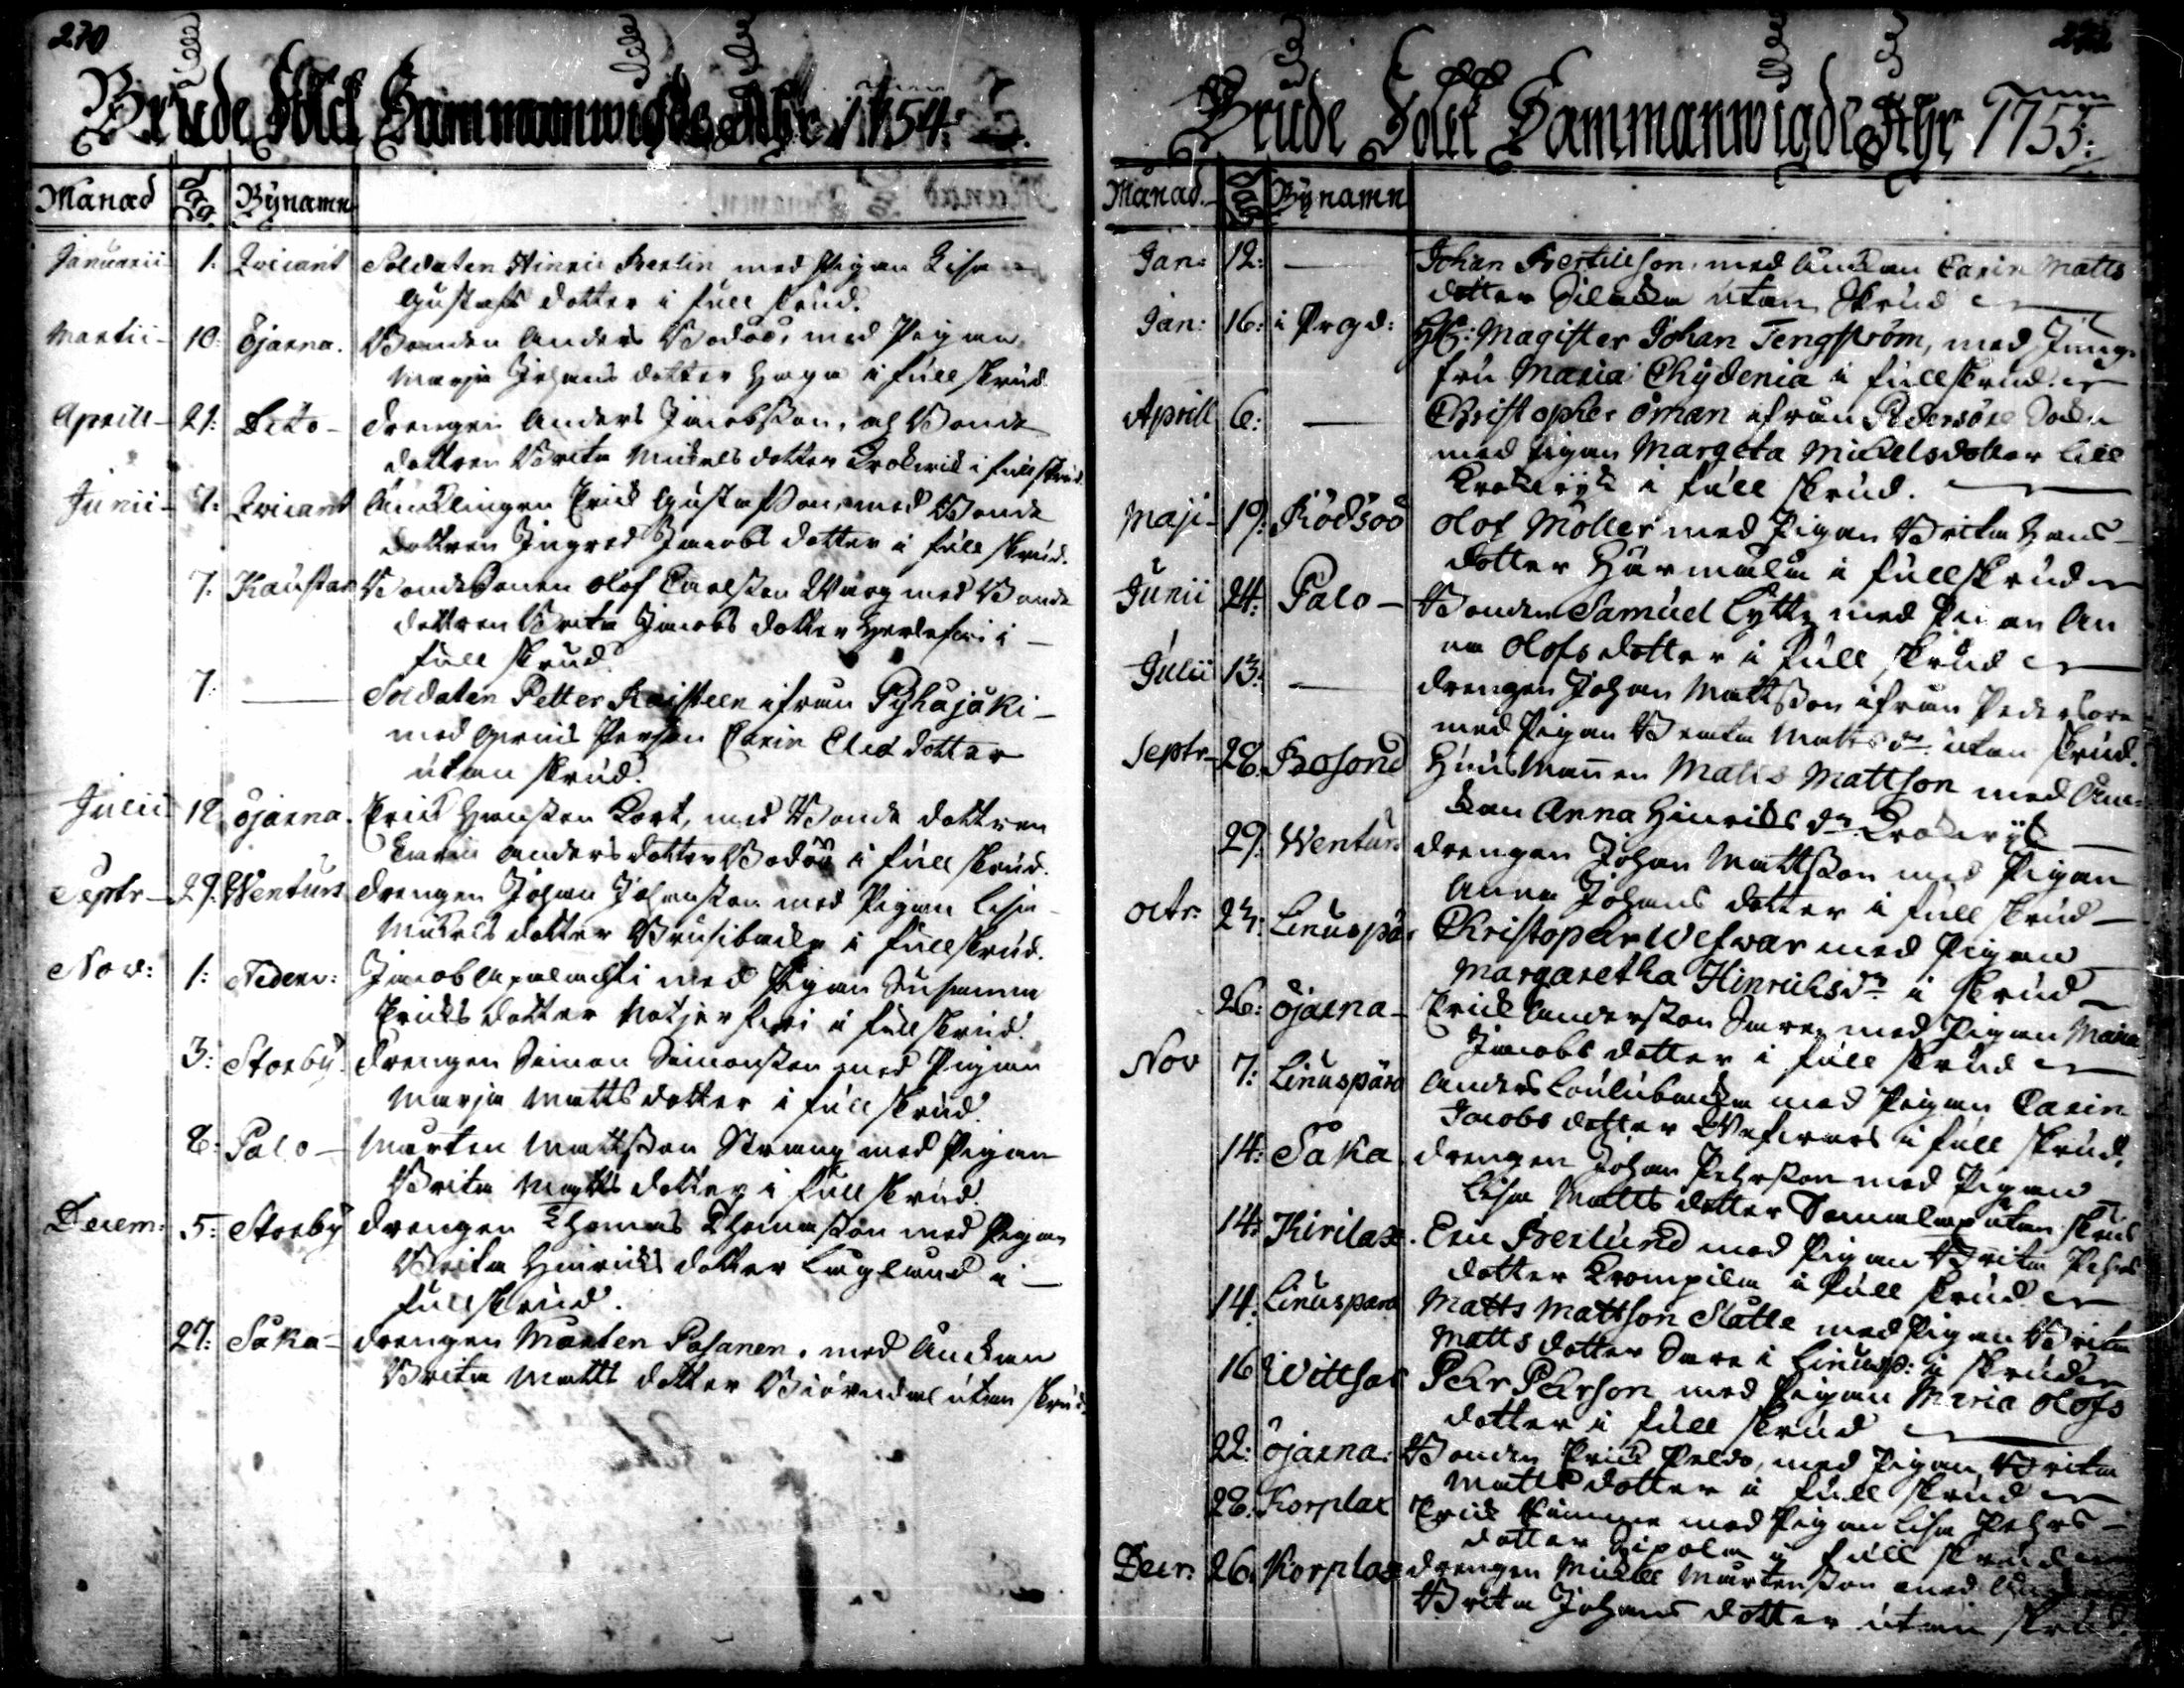 270
Brude Folck Sammanwigde Åhr 1754.
Månad Dag Bÿnamn
Januarii 1. Qvicant Soldaten Hinric Berlin med Pigan Lisa
Gustafs dotter i full skrud.
Martii 10. Öjarna. Bonden Anders Bodöö, med Pigan
Marja Johans dotter Haga i full skrud
Aprill 21: Ditto Drengen Anders Jacobsson, och Bonde
dottren Brita Mickels dotter Krokwik i full skrud.
Junii 7: Qvicant Änklingen Erick Gustafsson, med Bonde
dottren Ingred Jacobs dotter i full skrud.
7. Kaustar Bondesonen Olof Carlsson Warg med Bonde
dottren Brita Jacobs dotter i
full skrud
7. Soldaten Petter Kaisteen ifrån Pyhäjåki
med Carin Elias dotter
utan skrud.
Julii 12 Öjarna. Erick Hansson Kort, med Bonde dottren
Carin Anders dotter Bodöö i full skrud.
Septr 29. Wenturs Drengen Johan Johansson med Pigan Lisa
Mickels dotter i full skrud.
Nov: 1: Nederv: Jacob med Pigan Susanna
Ericks dotter i full skrud.
3: Storbÿ. Drengen Simon Simonsson med Pigan
Marja Matts dotter i full skrud.
8: Palo Mårten Mattsson Strang med Pigan
Brita Matts dotter i full skrud.
Decem: 5: Storbÿ Drengen Thomas Thomasson med Pigan
Brita Hinricks dotter Laglund i
full skrud.
27: Såka Drengen Mårten Pasanen, med Änckan
Brita Matts dotter Biörndal utan skrud.
Brude Folck Sammanwigde Åhr 1755.
Månad. Dag Bÿnamn
Jan: 12: Johan Bertillson, med Änckan Carin Matts
dotter utan skrud
Jan: 16: i Prgd: Magister Johan Tengström, med Jung
fru Maria Chydenia i full skrud.
Aprill 6: Christopher Öman ifrån Pedersöre Sockn
med Pigan Margeta Mickelsdotter Lill
i full skrud.
Maji 19: Rödsöö Olof Möller med Pigan Brita Hans
dotter Härmälä i full skrud
Junii 24: Palo Bonden Samuel Lytts med Pigan An
na Olofs dotter i full skrud
Julii 13: Drengen Johan Mattsson ifrån Pedersöre
med Pigan Beata Matts dr utan skrud.
Septr 28. Bosond Huusmannen Matts Mattson med Änc
kan Anna Hinricks dr
29. Wenturs Drengen Johan Mattsson med Pigan
Anna Johans dotter i full skrud
Octr: 23: Linuspär Christopher Wefwar med Pigan
Margaretha Hinrichsdr i skrud
26: Öjarna Erick Andersson Sare med Pigan Maria
Jacobs dotter i full skrud
Nov 7: Linuspärä Anders med Pigan Carin
Jacobs dotter Wefwars i full skrud.
14: Såka Drengen Johan Pehrsson med Pigan
Lisa Matts dotter utan skrud
14: Kirilax. Eric Berlund med Pigan Brita Pehrs
dotter Krompila i full skrud
14. Linuspärä Matts Mattson Slatte med Pigan Brita
Matts dotter Sare i Linusp: i skrud
16 Wittsar Pehr Pehrson med Pigan Maria Olofs
dotter i full skrud
22: Öjarna. Bonden Erick Peldo, med Pigan Brita
Matts dotter i full skrud
28. Korplax Erick med Pigan Lisa Pehrs
dotter Sipola i full skrud
Decr. 26. Korplax Drengen Mickel Mårtensson med
Brita Johans dotter utan skrud.